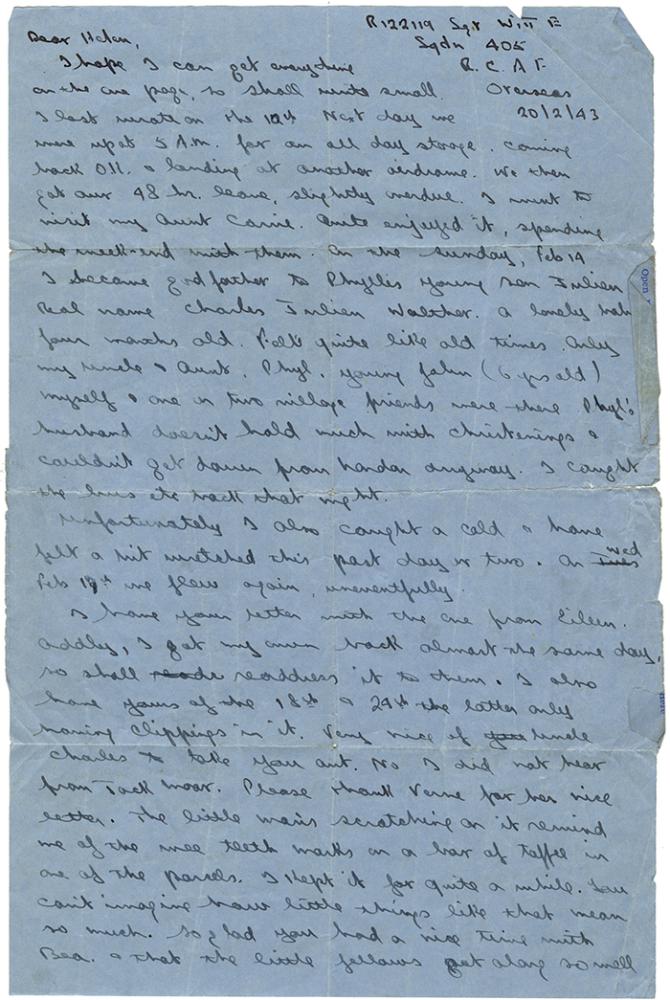 R122119 Sgt Witt E
Sqdn 405
Dear Helen,
R. C. A F.
I hope I can get everything
Overseas
on the one page, so shall write small.
20/2/43
I last wrote on the 12th Next day we
were up at 5 A.m. for an all day stooge. coming
back O.K. & landing at another airdrome. We then
got our 48 hr. leave, slightly overdue. I went to
visit my Aunt Carrie. Quite enjoyed it, spending
the week-end with them. On the Sunday, Feb 14
I became godfather to Phyllis young son Julien
Real name Charles Julien Walther. a lovely
four months old. Felt quite like old times. Only
my uncle & Aunt, Phyl. young John (6 yrs old)
myself & one or two village friends were there Phyl's
husband doesn't hold much with christenings &
couldn't get down from London anyway. I caught
the bus etc back that night.
Unfortunately I also caught a cold & have
felt a bit wretched this past day or two. On Tues wed
Feb 17th we flew again, uneventfully.
I have your letter with the one from Eileen.
Oddly, I got my own back almost the same day,
so shall readdress it to them. I also
have yours of the 18th & 24th the latter only
having clippings in it. Very nice of uncle
Charles to take you out. No I did not hear
from Jack Moar. Please thank Verne for her nice
letter. The little man's scratching on it remind
me of the wee teeth marks on a bar of taffee in
one of the parcels. I kept it for quite a while. You
can't imagine how little things like that mean
so much. So glad you had a nice time with
Bea. & that the little fellows get along so well
Open